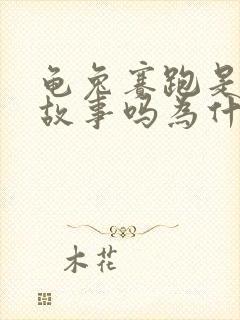 龟兔赛跑是
故事吗为什
木花